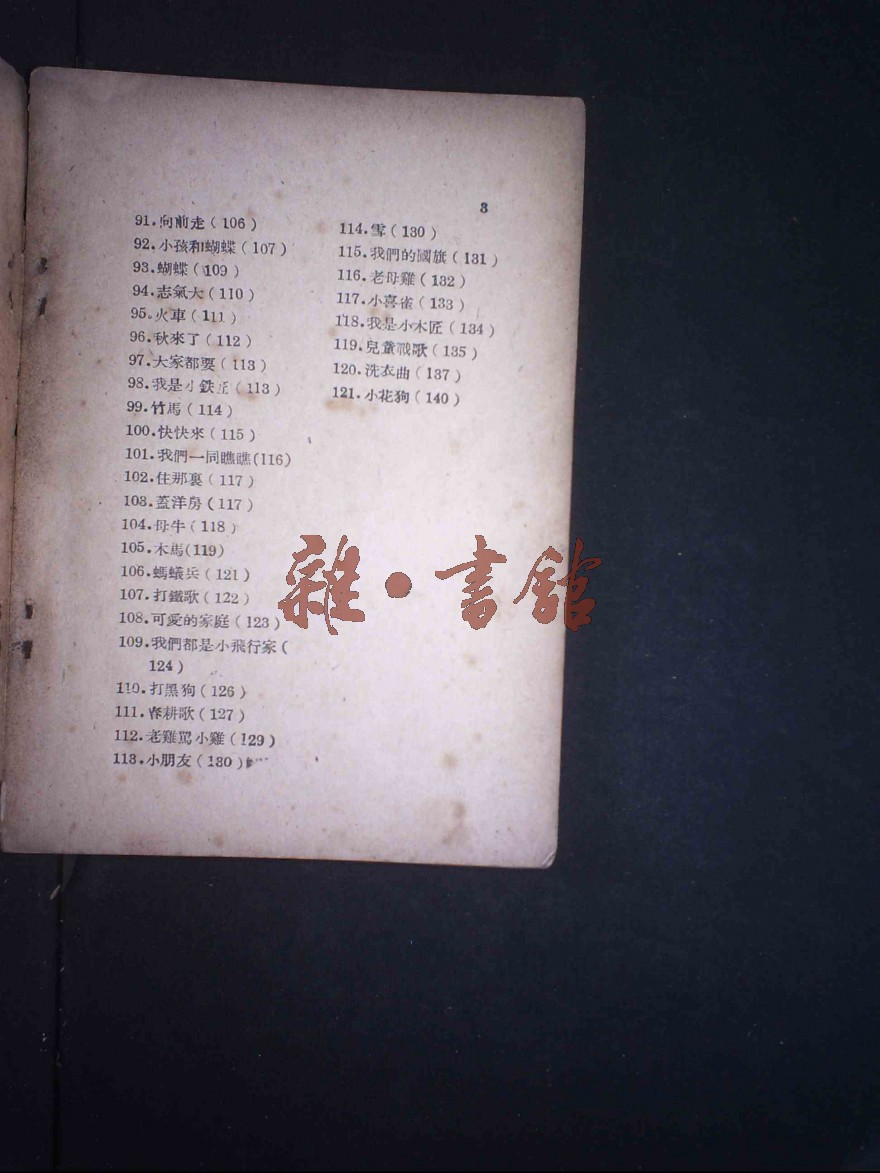 3
91.向前走(106)
92.小孩和蝴蝶(107)
93.蝴蝶(109)
94.志氣大(110)
95.火車(111)
96.秋來了(112)
97.大家都要(113)
98.我是小鉄匠(113)
99.竹馬(114)
100.快快來(115)
101.我們一同瞧瞧(116)
102.住那裏(117)
103.蓋洋房(117)
104.母牛(118)
105.木馬(119)
106.螞蟻兵(121)
107.打鐵歌(122)
108.可愛的家庭(123)
109.我們都是小飛行家(
124)
110.打黑狗(126)
111.春耕歌(127)
112.老雞罵小雞(129)
113.小朋友(130)
114.雪(130)
115.我們的國旗(131)
116.老母雞(132)
117.小喜雀(133)
118.我是小木匠(134)
119.兒童戰歌(135)
120.洗衣曲(137)
121.小花狗(140)
雜·書館